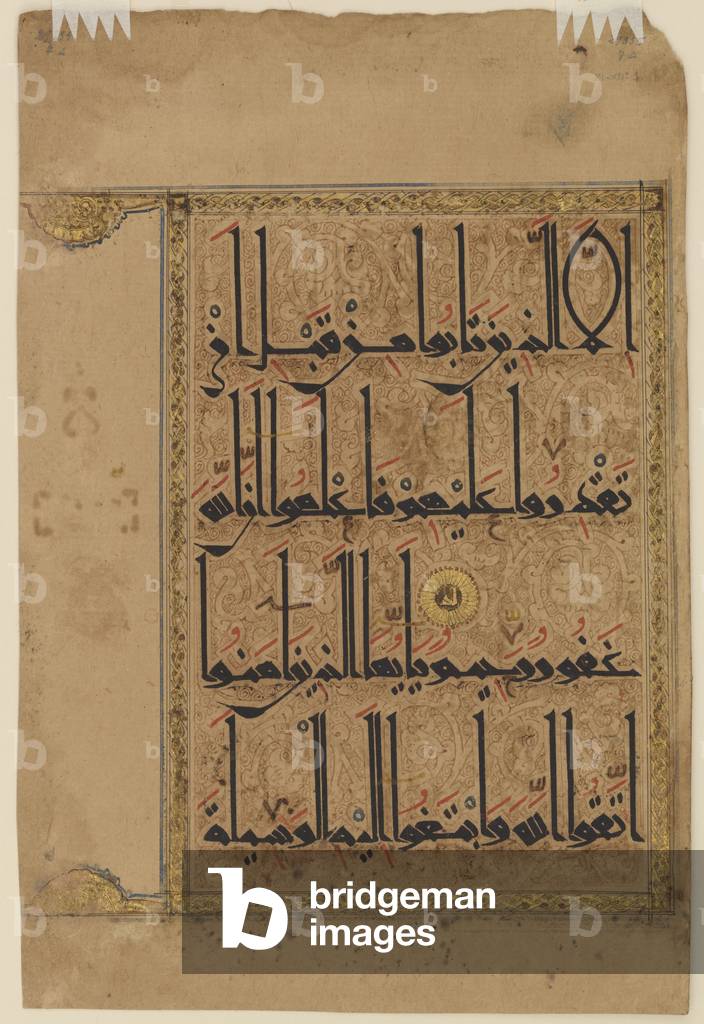 إِلَّا الَّذِينَ تَابُوا مِنْ قَبْلِ أَنْ
تَقْدِرُوا عَلَيْهِمْ فَاعْلَمُوا أَنَّ اللَّهَ
غَفُورٌ رَحِيمٌ يَا أَيُّهَا الَّذِينَ آمَنُوا
اتَّقُوا اللَّهَ وَابْتَغُوا إِلَيْهِ الْوَسِيلَةَ
bridgeman
images